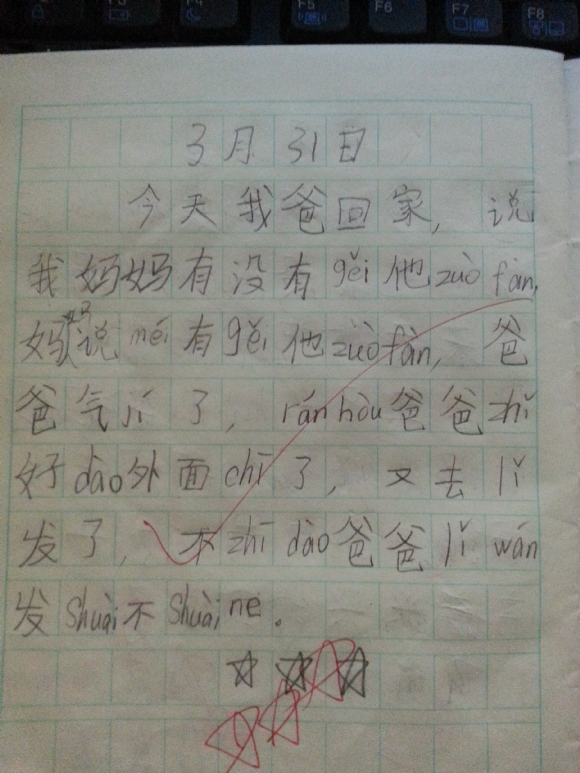 F2
F3
F4
F5
F6
F7
F8
3月31日
今天我爸回家,说
我妈妈有没有gěi他zuò fàn,
妈妈说méi有gěi他zuò fàn,爸
爸气jí了,rán hòu爸爸zhǐ
好dào外面chī了,又去lǐ
发了,不zhī dào爸爸lǐ wán
发Shuài不Shuài ne.